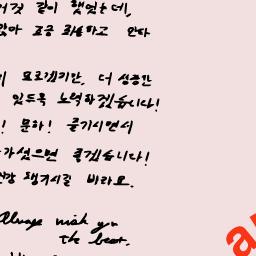 같이 했었는데,
조금
모르겠지만, 더 성공한
있도록 노력하겠습니다!
! 문하! 즐기시면서
가셨으면 좋겠습니다!
건강 챙기시길 바라요.
Always wish you
the best.
a